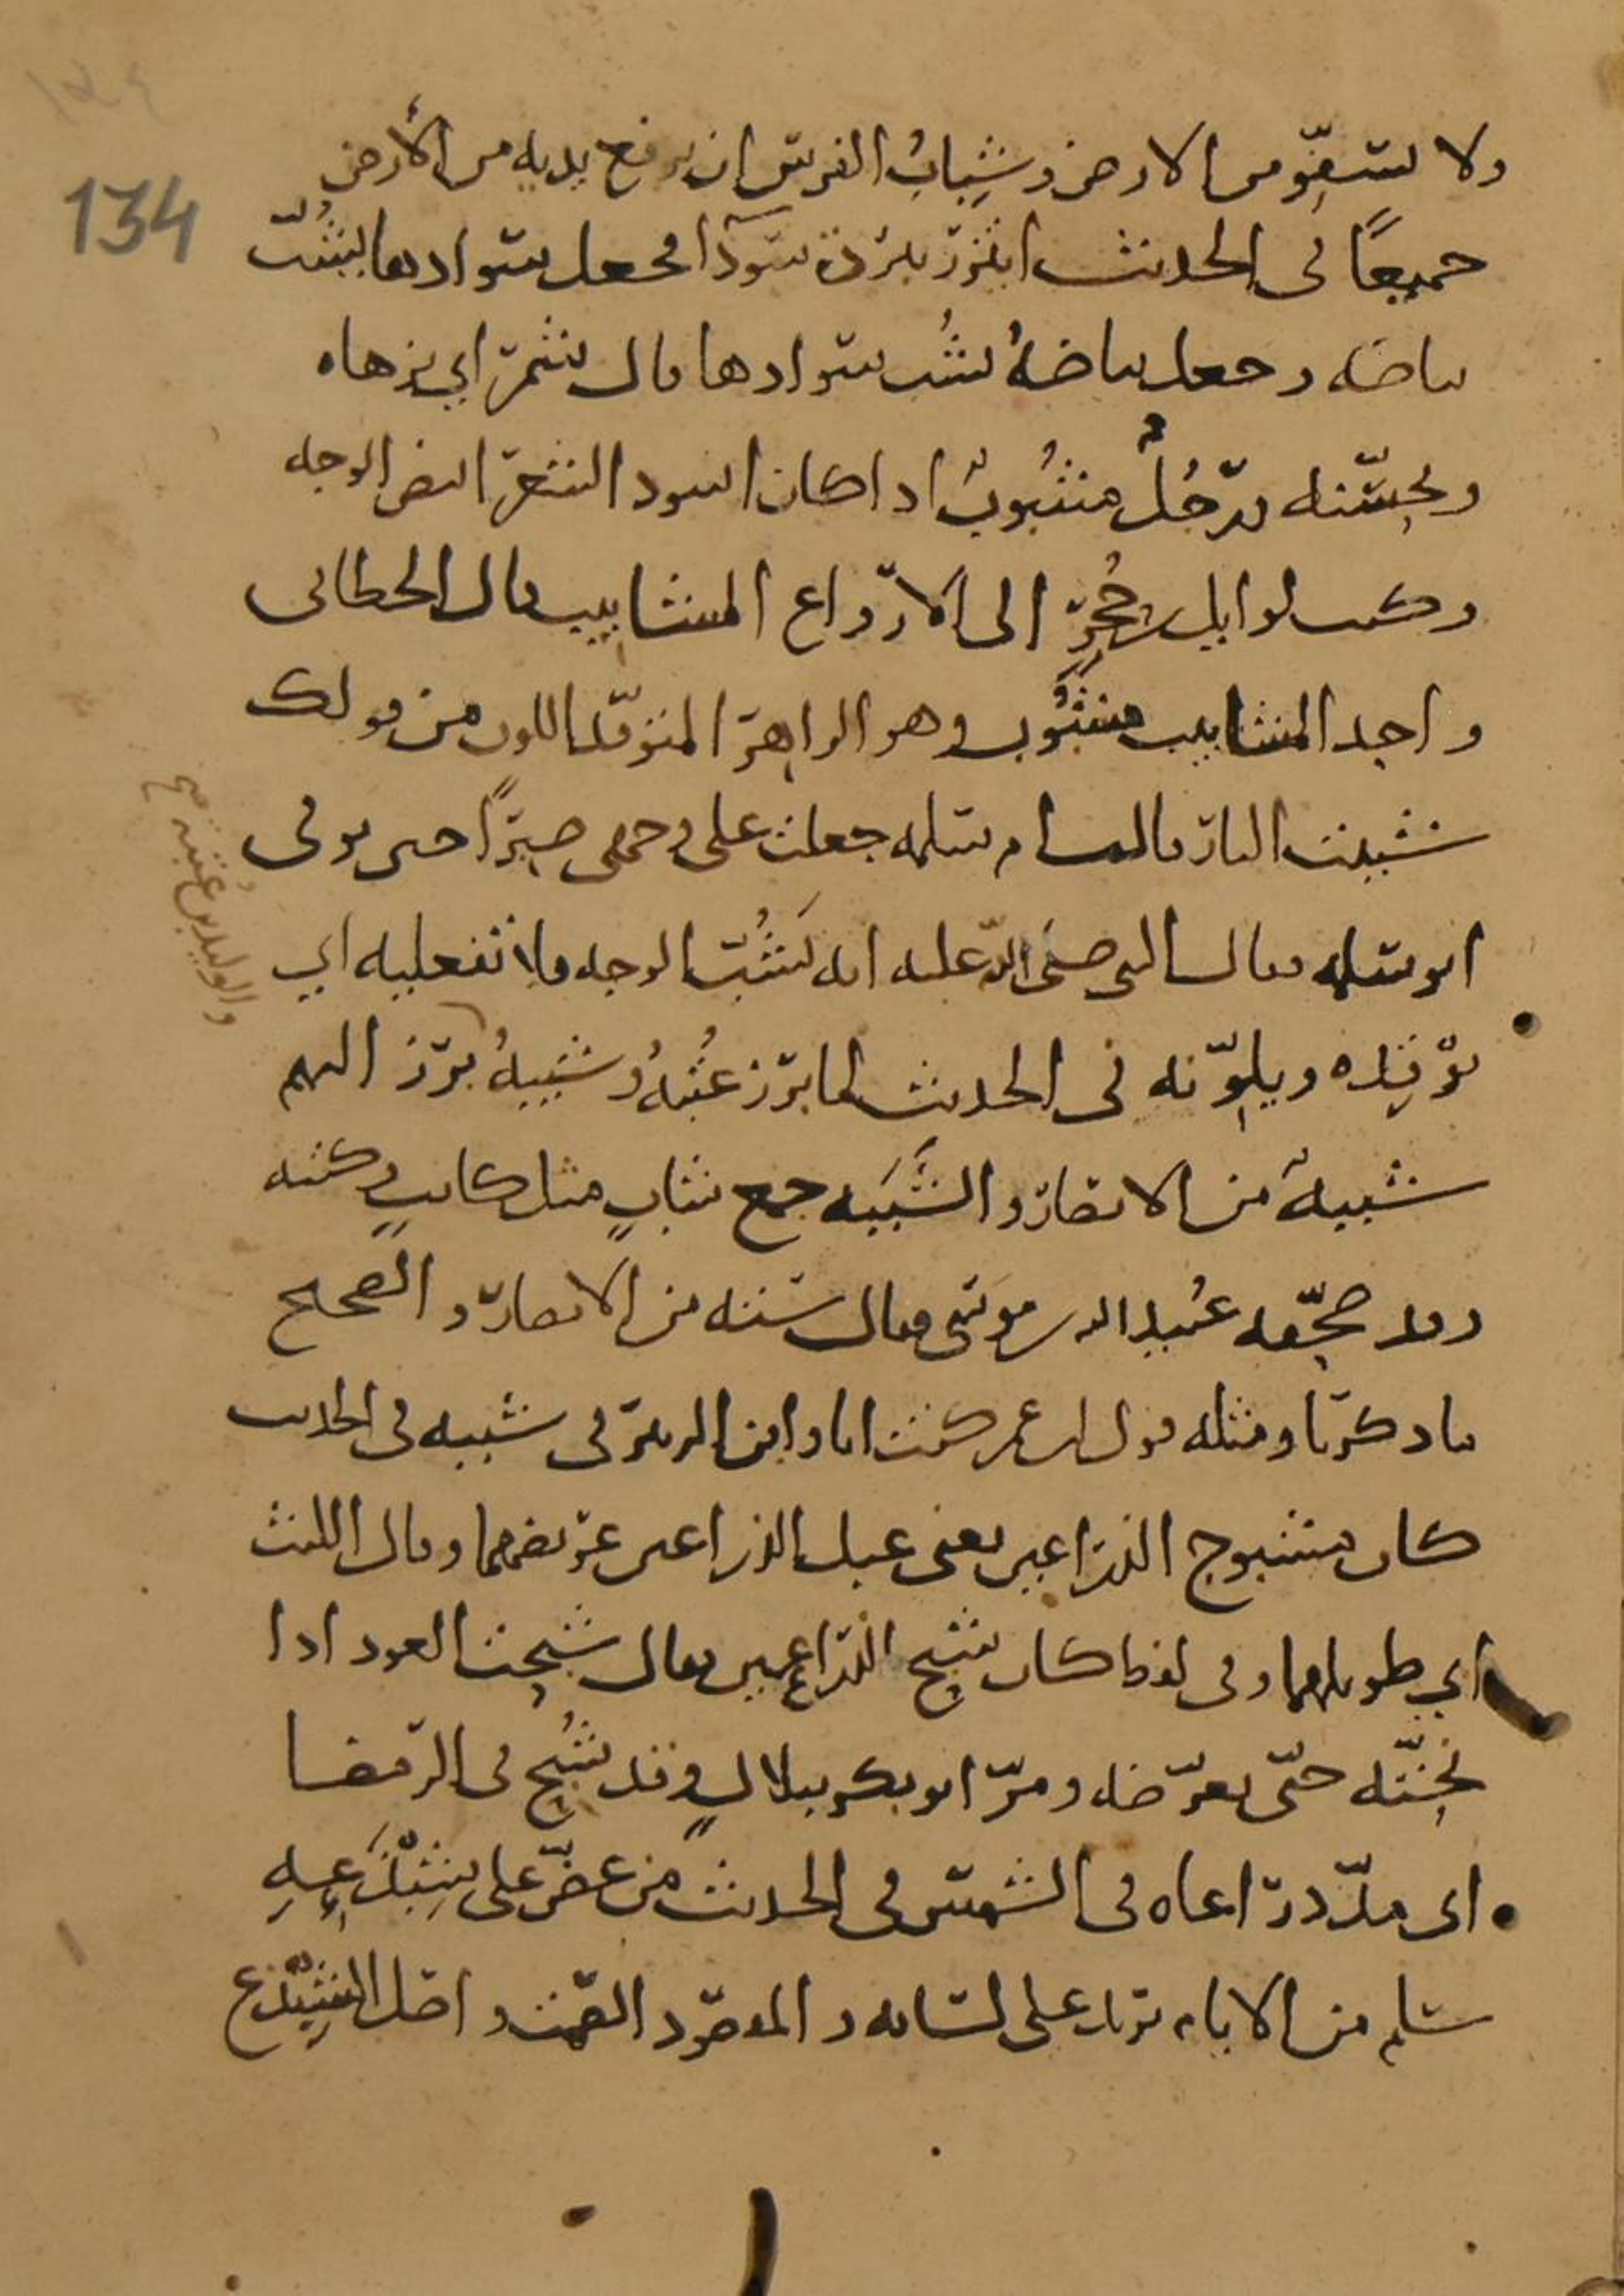 134
ولا يستقر من الارض وشباب الفرس ان يرفع يديه من الأرض
جميعًا في الحديث ائتزر ببردة سودآ فجعل سوادها يشبّ
بياضه وجعل بياضهُ يشب سوادها قال شمر اي يزهاه
ويحسّنه ورجُلٌ مشبُوبٌ اذا كان اسود الشعر ابيض الوجه
وكتب لوايل بن حُجر الى الارواع المشابيب قال الخطابي
واحد المشابيب مشبُوب وهو الزاهر المتوقّد اللون من قولك
شببت النار قالت ام سلمه جعلت على وجهي صبرًا حين توفي
ابو سلمه فقال النبي صلى الله عليه انه يَشُبّ الوجه فلا تفعليه اي
يوقِده ويلوّنه في الحديث لما برز عتبهُ وشيبهُ برز اليهم
والوليد بن عُتبه صح
شببهٌ من الانصار والشَّبَبه جمع شابٍ مثل كاتبٍ وكتبه
وقد صحّفه عُبيد الله بن موسَى فقال ستة من الانصار والصحيح
ما ذكرنا ومثله قول ابن عمر كنت انا وابن الزبير في شببه في الحديث
كان مشبوح الذراعين يعني عبل الذراعين عريضهما وقال الليث
اي طويلهما وفي لفظ كان شبح الذراعين يقال شبحت العود اذا
نحتّه حتّى تعرّضه ومرّ ابو بكر ببلالٍ وقد شُبح في الرمضا
اي مدّ ذراعاه في الشمس في الحديث من عضّ على شِبْدَعِهِ
سلم من الاثام يريد على لسانه والمقصود الصمت واصل الشِبْدع